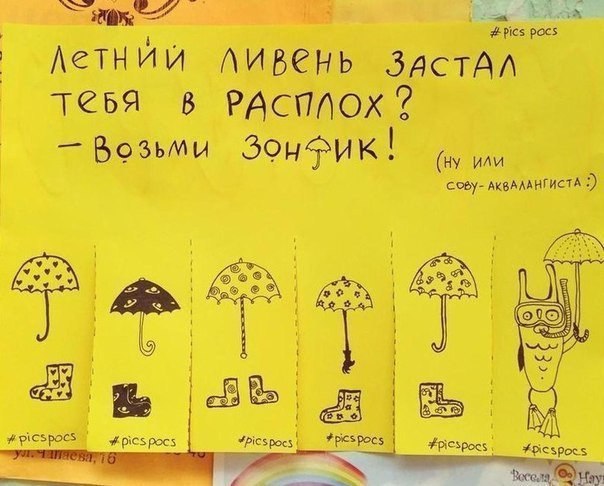 #pics pocs
Летний ливень застал
тебя в расплох?
- Возьми зонтик!
(ну или
сову-аквалангиста :)
#picspocs
#picspocs
#picspocs
#picspocs
#picspocs
#picspocs
ул. Чапаева, 16
Весела Нау